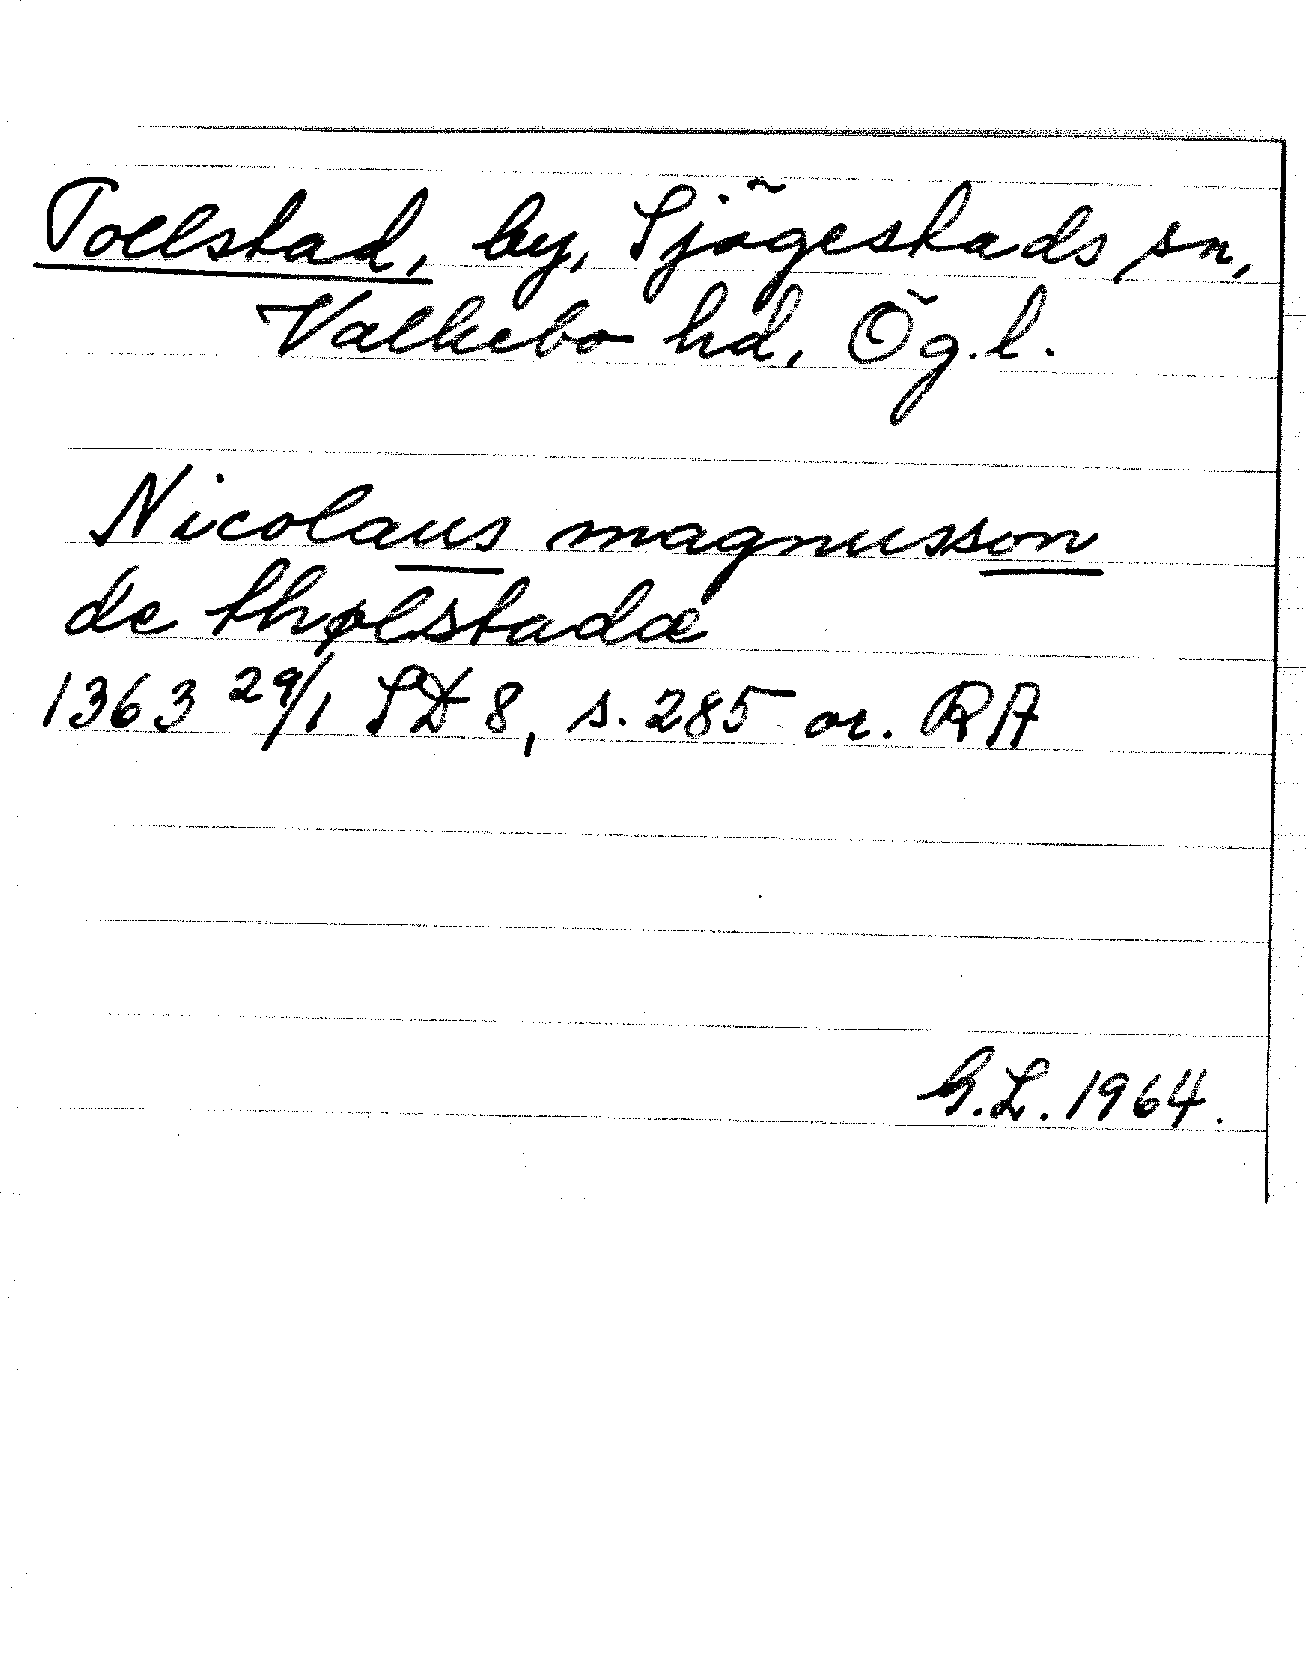 Tollstad, by, Sjögestads sn,
Valkebo hd, Ög.l.
Nicolaus magnusson
de thølstadæ
1363 29/1 SD 8, s. 285 or. RA
G.L. 1964.